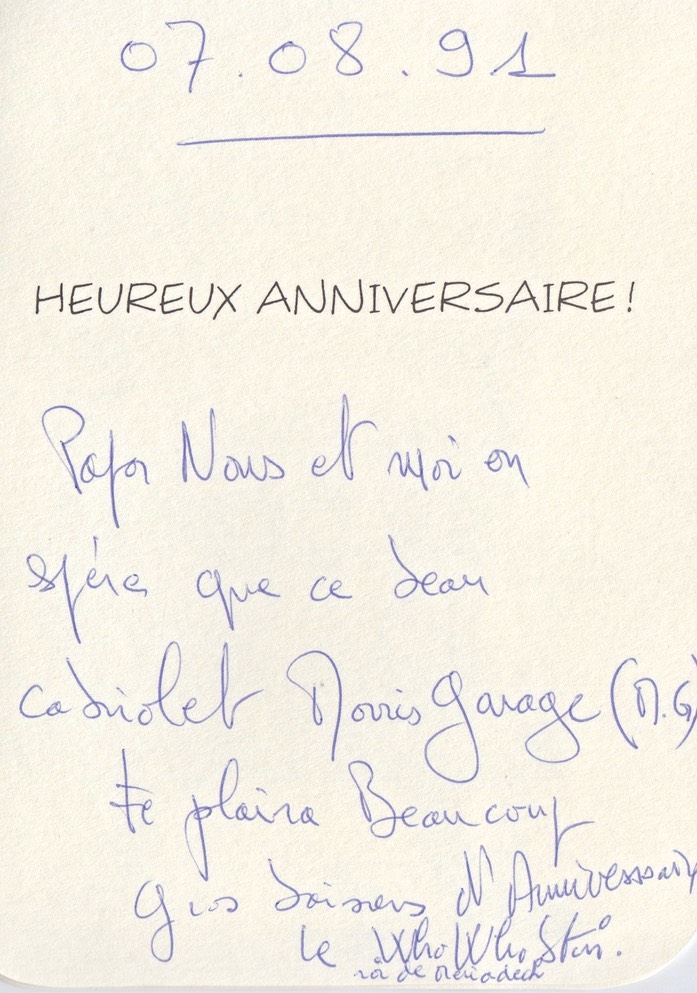 07.08.91
HEUREUX ANNIVERSAIRE!
Papa Nous et moi on
spére que ce beau
cabriolet Morris Garage (M.G)
te plaira Beaucoup
Gros baisers d'Anniverssaire
le WhoWho Stin.
roi de Meriadech